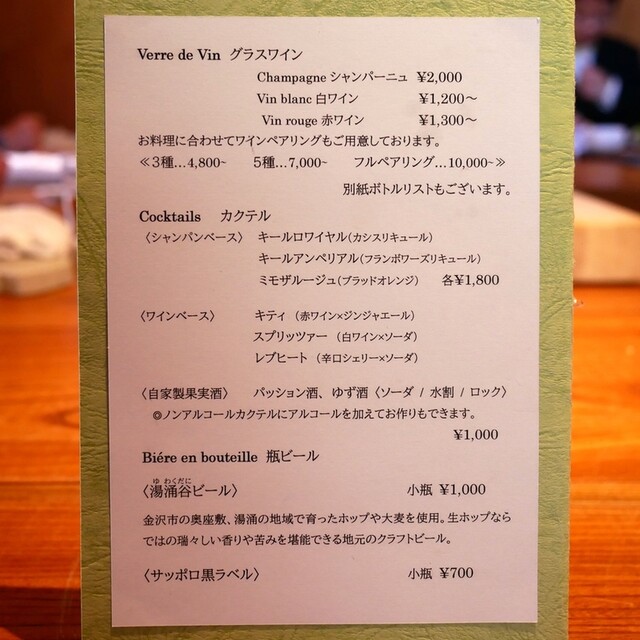 Verre de Vin グラスワイン
Champagne シャンパーニュ ¥2,000
Vin blanc 白ワイン ¥1,200～
Vin rouge 赤ワイン ¥1,300～
お料理に合わせてワインペアリングもご用意しております。
≪3種…4,800~ 5種…7,000~ フルペアリング…10,000~≫
別紙ボトルリストもございます。
Cocktails カクテル
〈シャンパンベース〉 キールロワイヤル（カシスリキュール）
キールアンペリアル（フランボワーズリキュール）
ミモザルージュ（ブラッドオレンジ） 各¥1,800
〈ワインベース〉 キティ （赤ワイン×ジンジャエール）
スプリッツァー （白ワイン×ソーダ）
レブヒート （辛口シェリー×ソーダ）
〈自家製果実酒〉 パッション酒、ゆず酒〈ソーダ / 水割 / ロック〉
◎ノンアルコールカクテルにアルコールを加えてお作りもできます。
¥1,000
Biére en bouteille 瓶ビール
ゆ わくだに
〈湯涌谷ビール〉 小瓶 ¥1,000
金沢市の奥座敷、湯涌の地域で育ったホップや大麦を使用。生ホップなら
ではの瑞々しい香りや苦みを堪能できる地元のクラフトビール。
〈サッポロ黒ラベル〉 小瓶 ¥700